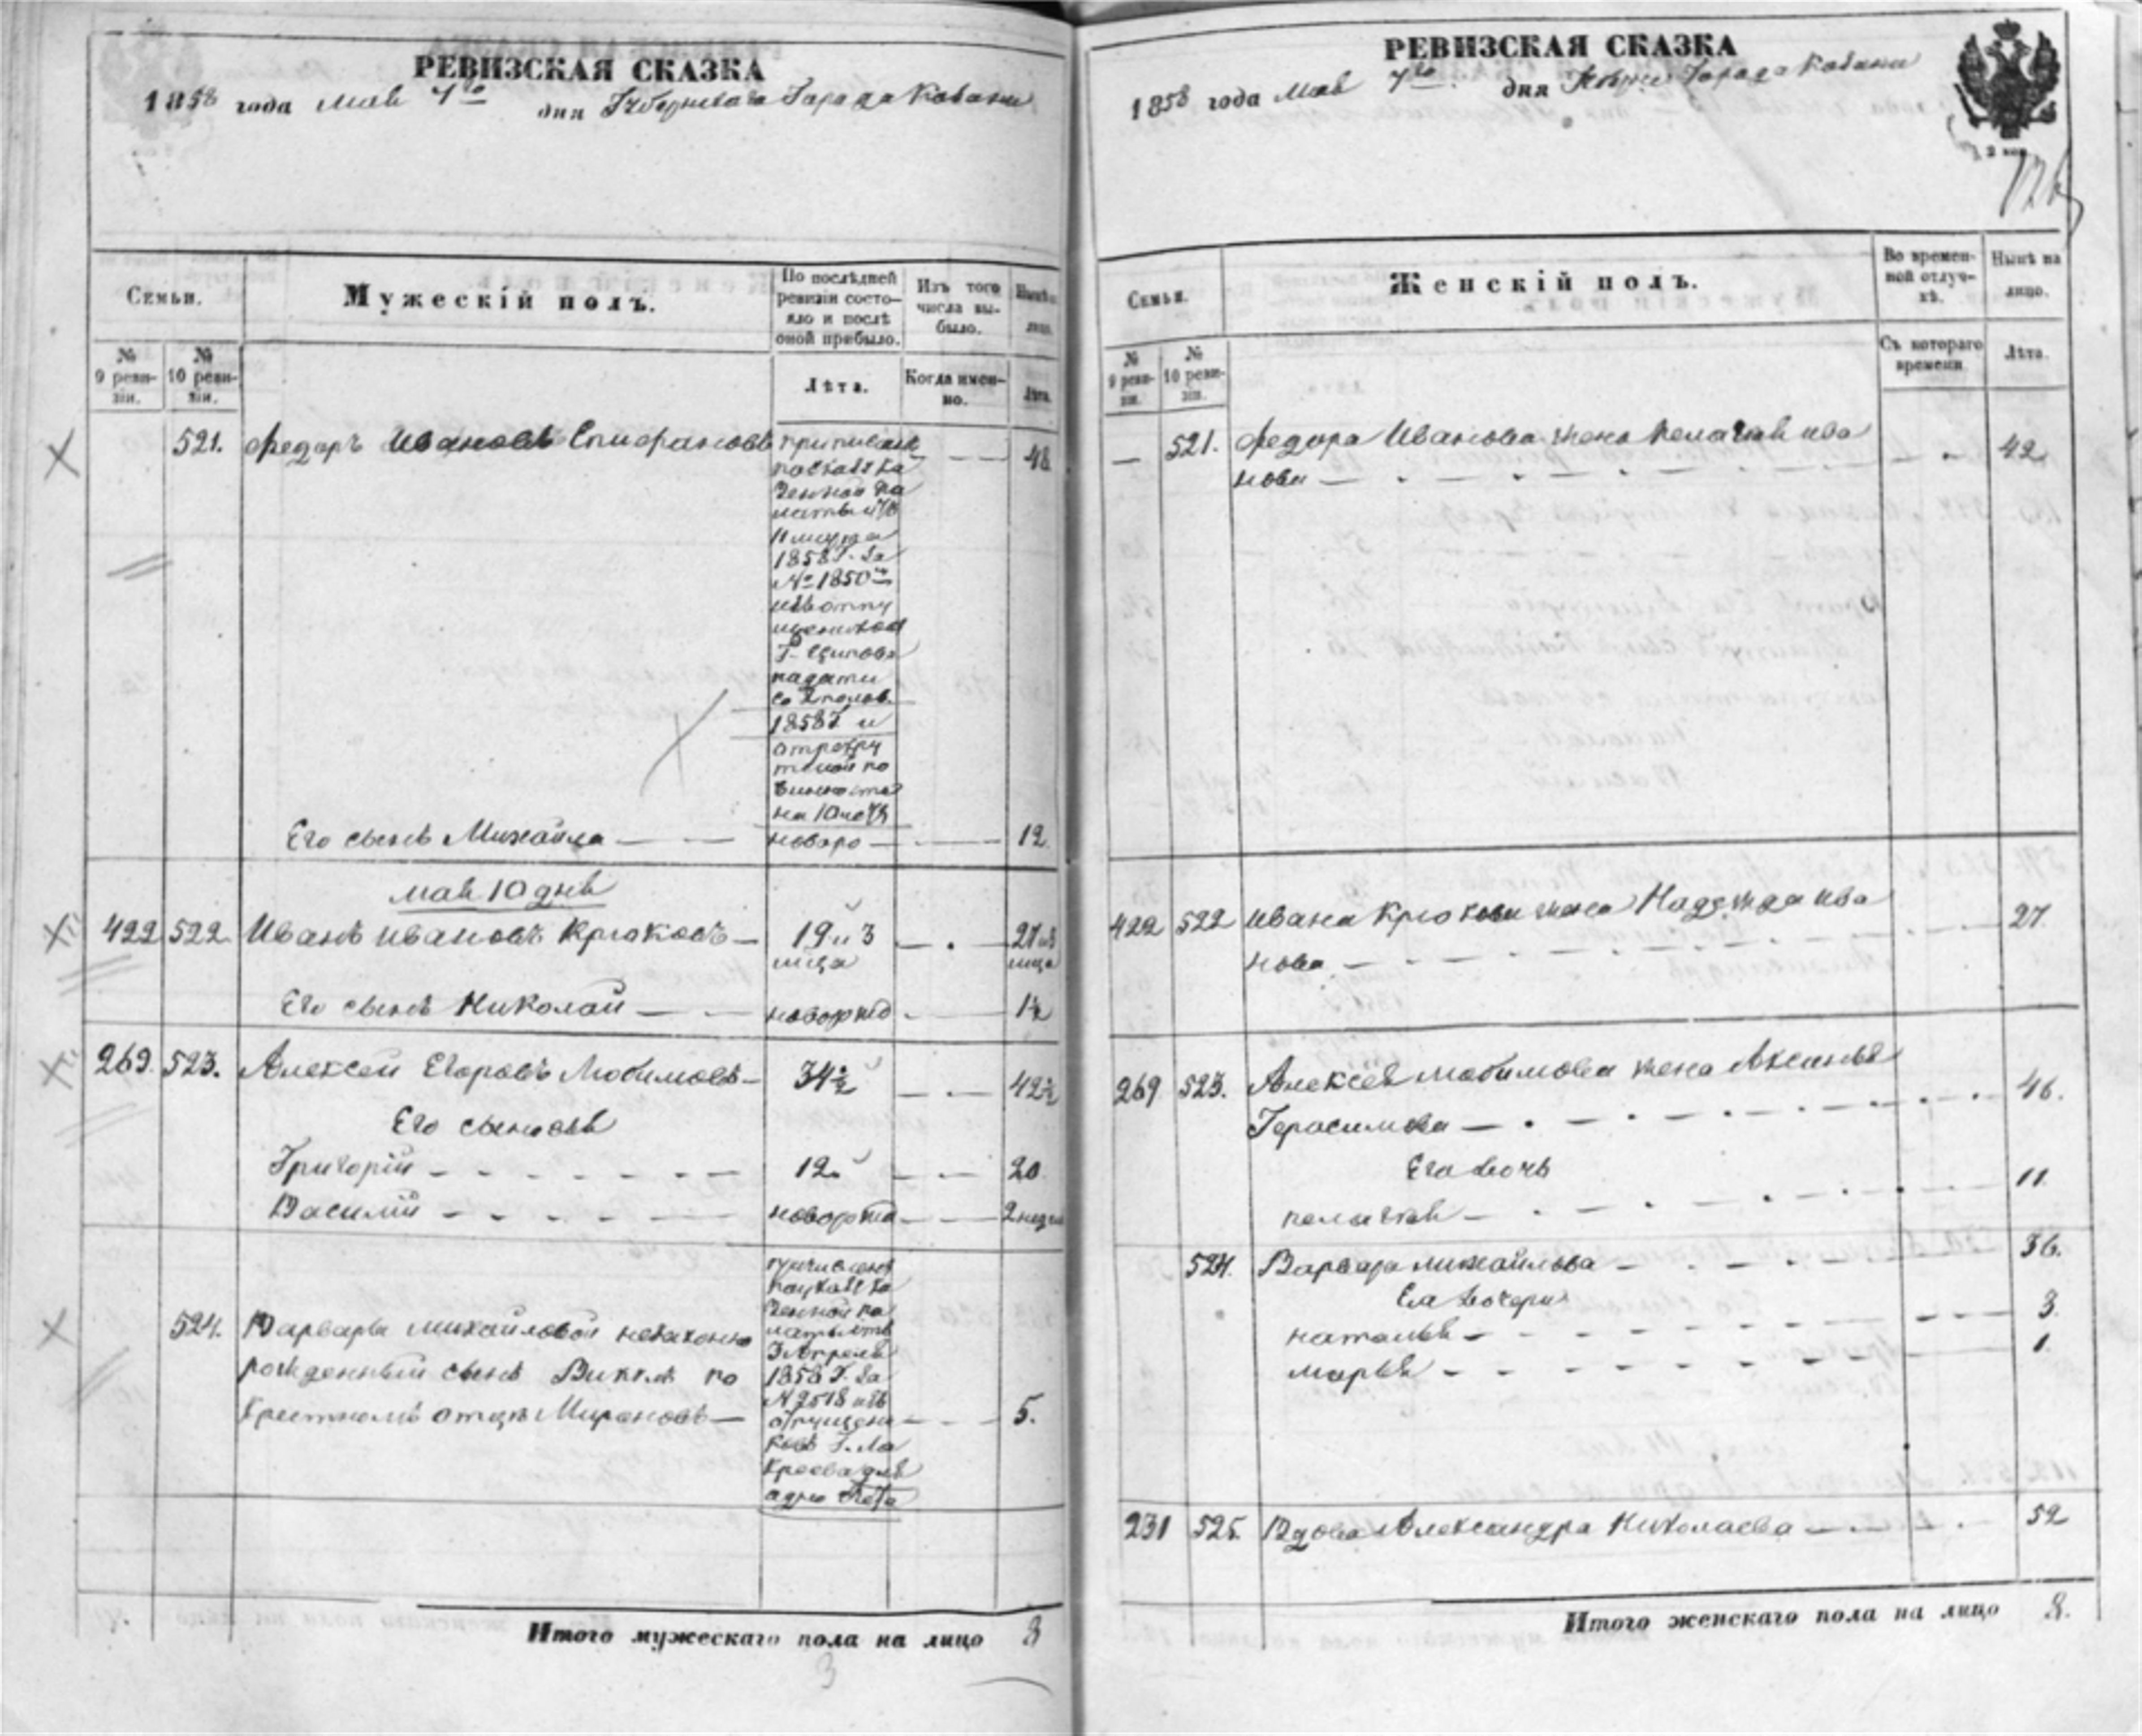 РЕВИЗСКАЯ СКАЗКА
1858 года мая 7го дня Губернскаго Города Казани
Семьи.
Мужескій полъ.
По послѣдней ревизіи состояло и послѣ оной прибыло.
Изъ того числа выбыло.
Нынѣ на лицо.
№ 9 ревизіи.
№ 10 ревизіи.
Лѣта.
Когда именно.
Лѣта.
521. Федоръ Ивановъ 48
по указу Ка
зенной Па
латы
1858 Г. За
№ 1850
изъ отпу
щенников
Г.
подати
со 2 полов.
1858 Г и
от рекру
тской по
винности
на
Его сынъ Михайла — — новоро — — 12
мая 10 дня
422 522 Иванъ Ивановъ Крюковъ — 19 и 3 — . — 27 и 3
мца мца
Его сынъ Николай — — новорожд — 1½
269. 523. Алексей Егоровъ Любимовъ — 34½ — . — 42½
Его сыновья
Григорій — 12 — 20
Василий — новорожд — 2 недел
причисленъ
по указу Ка
зенной Па
латы отъ
3 Апреля
1858 Г. За
№ 2518 изъ
отпущен
ковъ Г.
524. Варвары Михайловой незаконно
рожденный сынъ по
Крестному отцу Мироновъ — 5.
Итого мужескаго пола на лицо 8
3
РЕВИЗСКАЯ СКАЗКА
1858 года Мая 7го дня Города Казани
126
Семьи.
Женскій полъ.
Во временной отлучкѣ.
Нынѣ на лицо.
№ 9 ревизіи.
№ 10 ревизіи.
Съ котораго времени
Лѣта.
— 521. Федора Иванова жена Пелагея Ива 42
нова —
422 522 Ивана Крюкова жена Надежда Ива 27
нова —
269 523. Алексея Любимова жена Аксинья 46.
Герасимова —
Его дочь
Пелагея — 11.
524. Варвара Михайлова — 36.
Ея дочери
Наталья — 3.
Марья — 1.
231 525. Вдова Александра Николаева — 52
Итого женскаго пола на лицо 8.